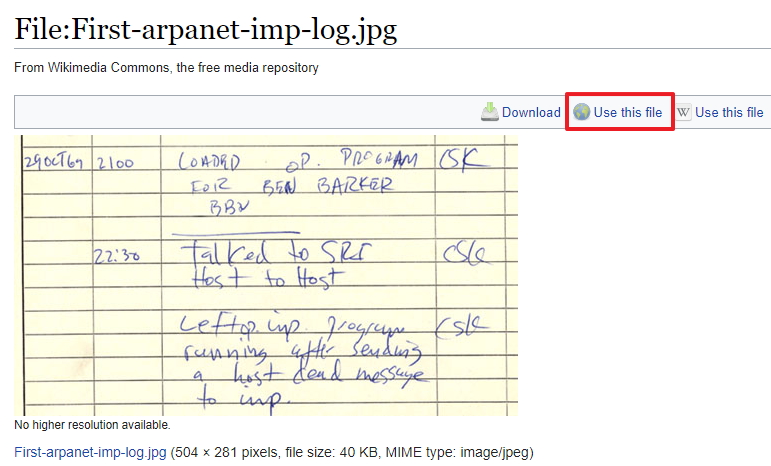 File:First-arpanet-imp-log.jpg
From Wikimedia Commons, the free media repository
Download Use this file W Use this file
29 OCT 69 2100 LOADED OP. PROGRAM CSK
FOR BEN BARKER
BBN
22:30 Talked to SRI CSK
Host to Host
Left op. imp. program CSK
running after sending
a host dead message
to imp.
No higher resolution available.
First-arpanet-imp-log.jpg (504 × 281 pixels, file size: 40 KB, MIME type: image/jpeg)